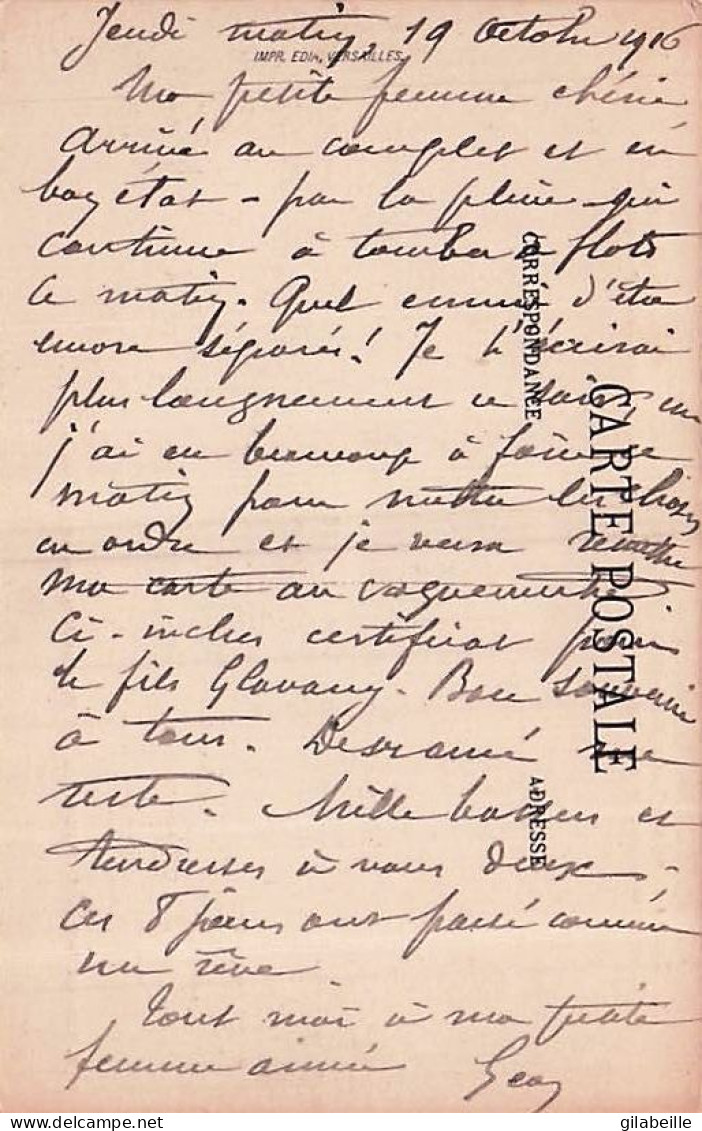 Jeudi matin, 19 Octobre 1916
IMPR. EDIA, VERSAILLES.
Ma petite femme chérie
Arrivé au complet et en
bon état - par la pluie qui
continue à tomber à flots
ce matin. Quel ennui d'être
encore séparés! Je t'écrirai
plus longuement ce soir, car
j'ai eu beaucoup à faire ce
matin pour mettre les choses
en ordre et je veux remettre
ma carte au vaguemestre
Ci-inclus certificat pour
le fils Glavany. Bon souvenir
à tous. Desramé
reste. Mille baisers et
tendresses à vous deux -
ces 8 jours ont passé comme
un rêve
Tout moi à ma petite
femme aimée
Geo
CORRESPONDANCE
CARTE POSTALE
ADRESSE
gilabeille